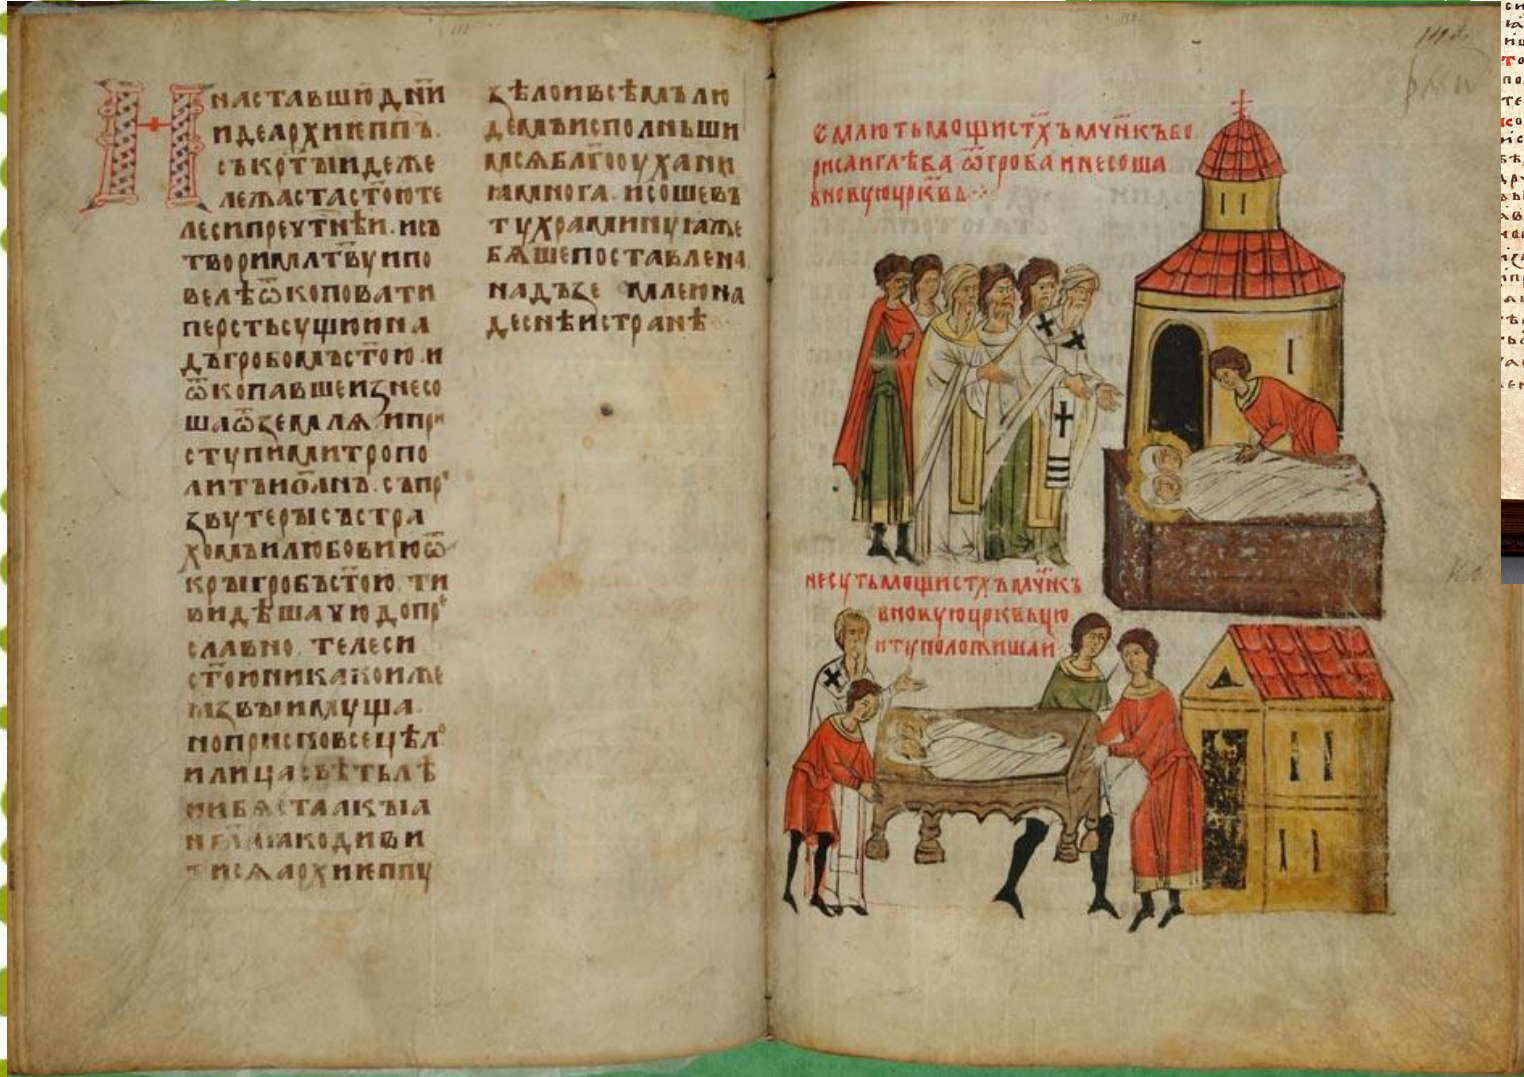 НАСТАВШЮ ДН҃И
ИДЕ АРХИЕПП҃Ъ.
СЪ КР҃ТЫ ИДЕЖЕ
ЛЕЖАСТА СТ҃ОЮ ТЕ
ЛЕСИ ПРЕЧ҃ТНѢИ. И СЪ
ТВОРИ МЛ҃ТВУ И ПО
ВЕЛѢ ѾКОПОВАТИ
ПЕРСТЬ СУЩЮЮ НА
ДЪ ГРОБОМЪ СТ҃ОЮ. И
ѾКОПАВШЕ ИЗНЕСО
ША Ѿ ЗЕМЛЯ. И ПРИ
СТУПИ МИТРОПО
ЛИТЪ ИОАНЪ. СЪ ПРѢ
ЗВУТЕРЫ СЪ СТРА
ХОМЪ И ЛЮБОВИЮ Ѿ
КРЫ ГРОБЪ СТ҃ОЮ. ТИ
ВИДѢША ЧЮДО ПРѢ
СЛАВНО. ТЕЛЕСИ
СТ҃ОЮ НИКАКОИЖЕ
ЯЗВЫ ИМУЩА.
НО ПРИСНО ВСЕ ЦѢЛО
И ЛИЦА СВѢТЬЛѢ
ИИ БѦСТА АКЫ А
ЯКО ДИВИ
ТИСѦ АРХИЕППУ
ЗѢЛО И ВСѢМЪ ЛЮ
ДЕМЪ ИСПОЛНЬШИ
МСѦ БЛ҃ГООУХАНИ
Я МНОГА. И СОШЕ ВЪ
ТУ ХРАМИНУ ЯЖЕ
БѦШЕ ПОСТАВЛЕНА
НАДЪ ЗЕМЛЕЮ НА
ДЕСНѢИ СТРАНѢ
ЕМЛЮТЬ МОЩИ СТ҃ХЪ МЧ҃НКЪ БО
РИСА И ГЛѢБА Ѿ ГРОБА И НЕСОША
В НОВУЮ ЦРК҃ВЬ
НЕСУТЬ МОЩИ СТ҃ХЪ МЧ҃НКЪ
В НОВУЮ ЦРКВЬЦЮ
И ТУ ПОЛОЖИША Й
РМИ